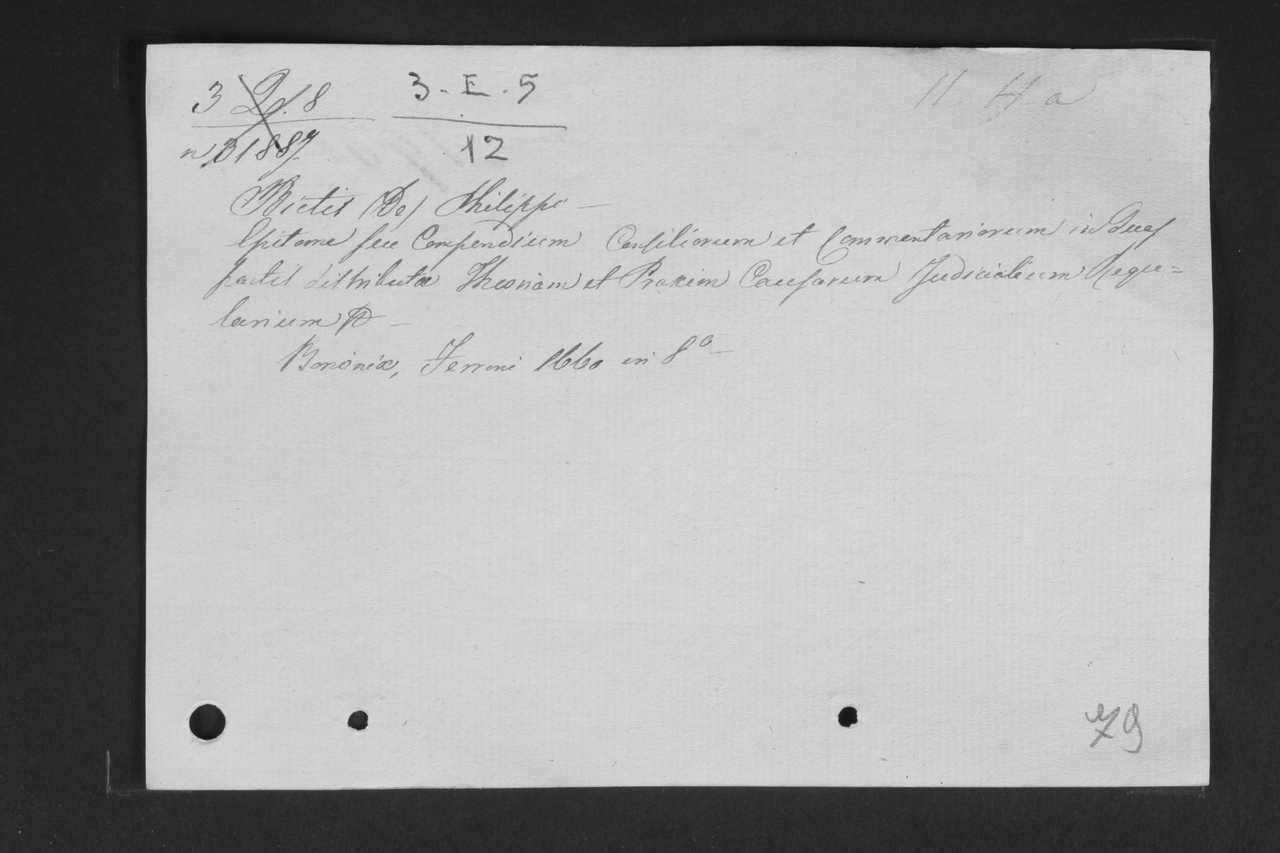 3 8
3. E. 5
11 H a
n 31887.
12
Rictis (De) Philippo —
Epitome seu Compendium Consiliorum et Commentariorum in duas
partes distributa Theoriam et Praxim Causarum Judicialium Regu=
larium —
Bononiæ, Ferroni 1660 in 8º —
79